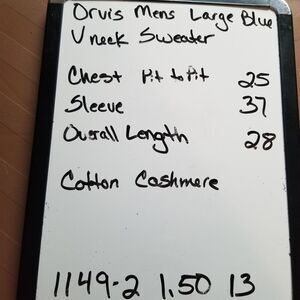 Orvis Mens Large Blue
V neck Sweater
Chest Pit to Pit 25
Sleeve 37
Overall Length 28
Cotton Cashmere
1149-2 1.50 13